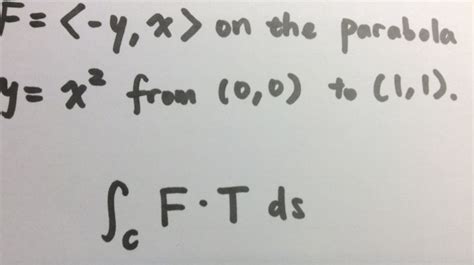 F = <-y, x> on the parabola
y = x² from (0,0) to (1,1).
∫_C F · T ds